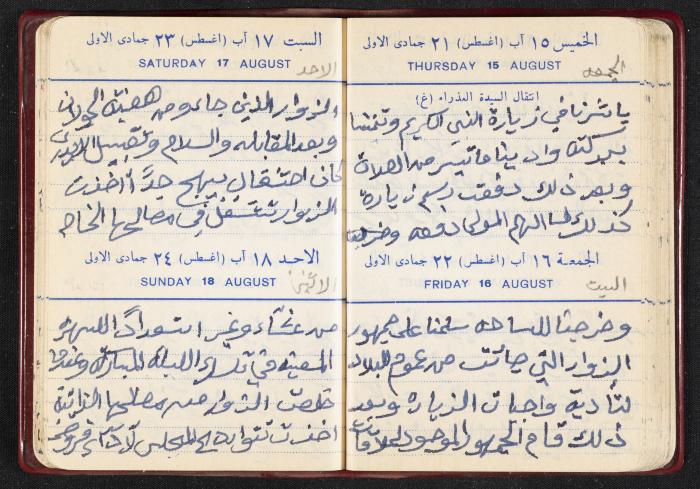 الخميس ١٥ آب (اغسطس) ٢١ جمادى الاولى
THURSDAY 15 AUGUST
الجمعه
انتقال السيدة العذراء (غ)
باشرنا في زيارة النبي الكريم وتمنينا
بركته وادينا ما تيسر من الصلاة
وبعد ذلك دفعت رسم زيارة
كذلك الهم المولى دفعه
الجمعة ١٦ آب (اغسطس) ٢٢ جمادى الاولى
FRIDAY 16 AUGUST
السبت
وخرجنا للساحه سلمنا على جمهور
الزوار التي جائت من عموم البلاد
لتأدية واجبات الزياره وبعد
ذلك قام الجمهور الموجود لملاقات
السبت ١٧ آب (اغسطس) ٢٣ جمادى الاولى
SATURDAY 17 AUGUST
الاحد
الزوار الذين جاءو من هضبة الجولان
وبعد المقابله والسلام وتقبيل الايدي
كان احتفال بهيج جداً اخذت
الزوار تشتغل في مصالحها الخاص
الاحد ١٨ آب (اغسطس) ٢٤ جمادى الاولى
SUNDAY 18 AUGUST
الاثنين
من عشاء وغير استعداداً للسهره
في تلك الليله المباركة وعندما
خلصت الزوار من مصالحها الذاتية
اخذت تتوابه الى المجلس لآداء فروض